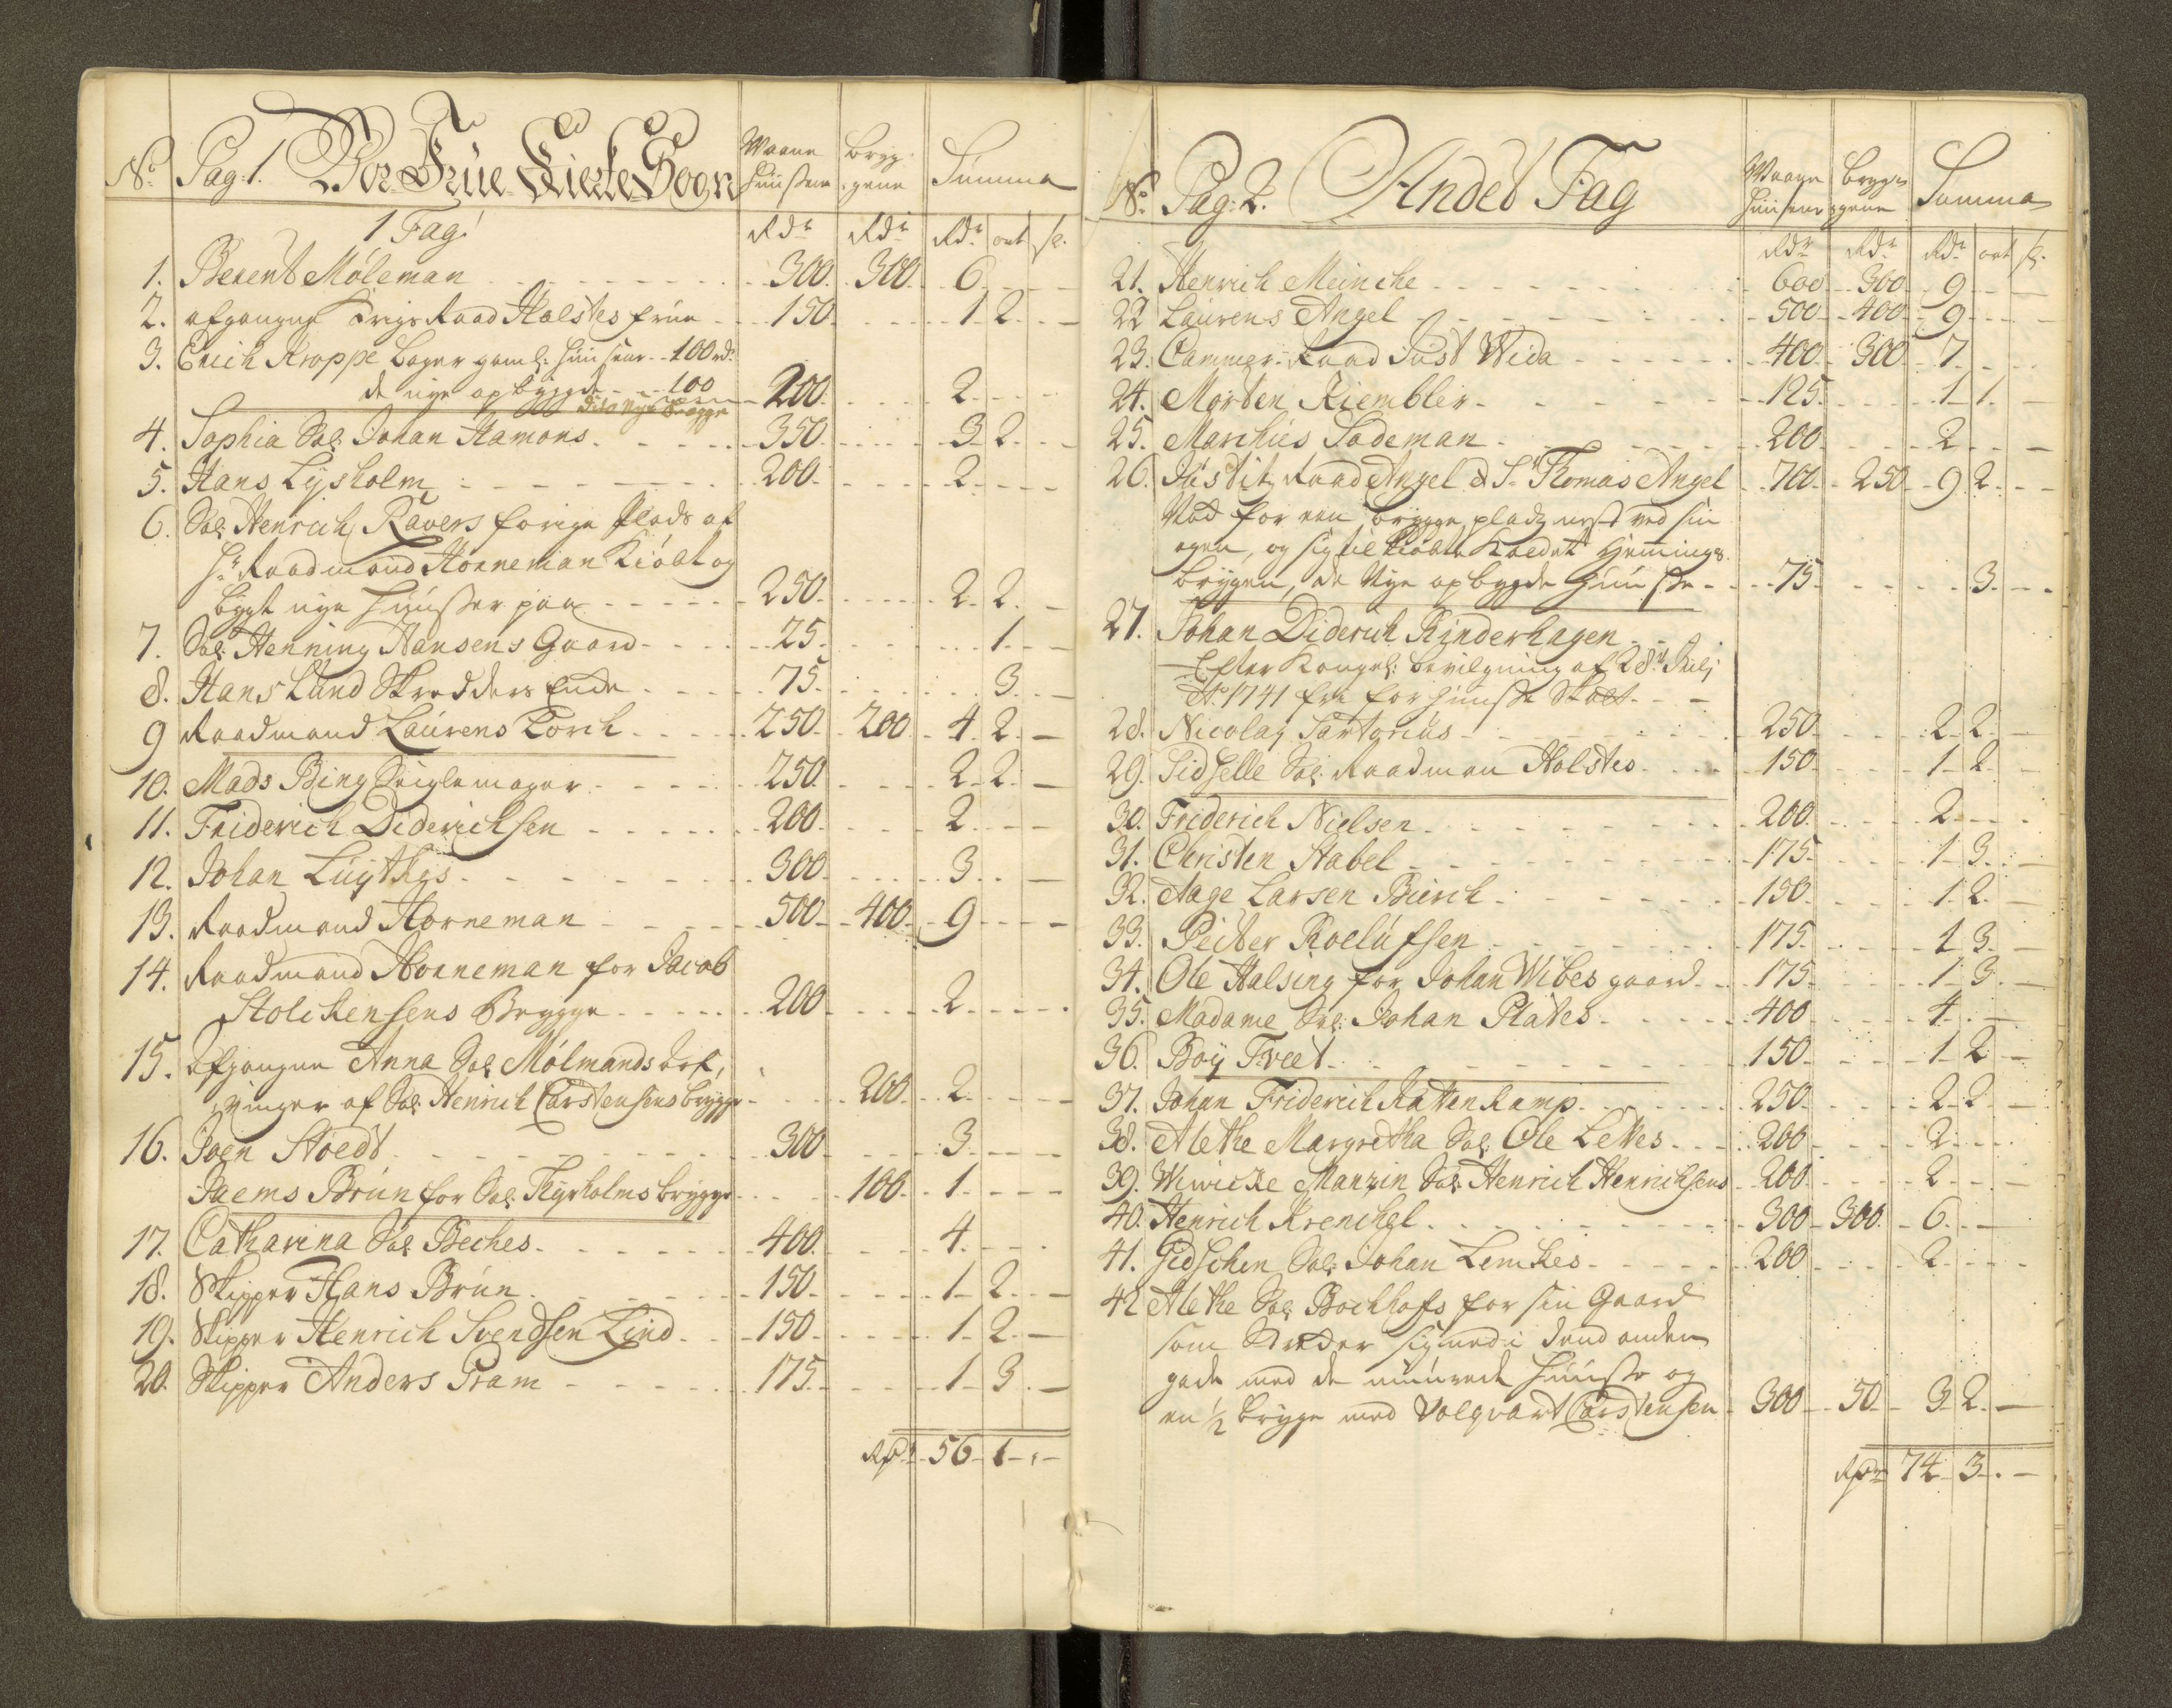 No. Pag: 1. Vor Frue Kierke Sogn Waane Huussene Bryg-gene Summa
1 Fag Rdr Rdr Rdr ort s.
1. Berent Möleman 300. 300. 6
2. afgangne Krigs Raad Holstes frue 150. 1 2.
3. Erich Kroppe Bager gaml: huusene 100 rd.
de nye opbygde 100 200. 2
dito Nye brygge
4. Sophia Sal: Johan Hamons 350. 3 2.
5. Hans Lysholm 200. 2
6. Sal: Henrich Ravers forige Plads af
Hr. Raadmand Horneman Kiöbt og
bygt nye huusser paa 250. 2. 2.
7. Sal: Henning Hansens Gaard 25. 1.
8. Hans Lund Skredders Enke 75. 3.
9 Raadmand Laurens Lorch 250. 200. 4. 2.
10. Mads Bing Seiglemager 250. 2. 2.
11. Friderich Diderichsen 200. 2.
12. Johan Luythes 300. 3.
13. Raadmand Horneman 500. 400. 9
14. Raadmand Horneman for Jacob
Stolckensens Brygge 200 2
15. Afgangne Anna Sal: Mölmands Arf,
vinger af Sal: Henrich Carstensens brygge 200. 2
16. Joen Stoedt 300 3
Jaems Brun for Sal: Thyrholms brygge 100. 1
17. Catharina Sal: Beches 400. 4.
18. Skipper Hans Brun 150. 1 2.
19. Skipper Henrich Svendsen Lind 150. 1 2.
20. Skipper Anders Pram 175. 1 3.
Rdr 56 1
No. Pag: 2. Andet Fag Waane Huusene Bryg-gene Summa
Rdr Rdr Rdr ort s.
21. Henrich Meincke 600 300 9
22 Laurens Angel 500 400 9
23. Cammer Raad Just Wida 400 300 7
24. Morten Kiembler 125. 1 1.
25. Marchus Sodeman 200 2
26. Justits Raad Angel & Sr. Thomas Angel 700. 250 9 2.
Nod for een brygge pladz nest ved sin
egen, og sig tilkiöbte kaldet Hennings
bryggen, de Nye opbygde huusse 75. 3.
27. Johan Diderich Rinderhagen
Efter Kongel: bevilgning af 28d July
Ao. 1741 frie for huusse Skatt
28. Nicolay Sartorius 250 2 2.
29. Sidselle Sal: Raadman Holstes 150 1 2.
30. Friderich Nielsen 200. 2
31. Christen Stabel 175 1 3.
32. Aage Larsen Bierch 150. 1 2.
33. Peiter Roelufsen 175. 1 3.
34. Ole Halsing for Johan Wibes gaard 175. 1 3.
35. Madame Sal: Johan Plates 400 4.
36. Boy Freet 150. 1 2
37. Johan Friderich Kattenkamp 250. 2 2
38. Alethe Margretha Sal: Ole Lettes 200 2
39. Wiwicke Manzin Sal: Henrich Henrichsens 200. 2
40. Henrich Krenchel 300 300. 6.
41. Gidschen Sal: Johan Lemkes 200 2
42 Alethe Sal: Bochhofs for sin Gaard
som Streder sig ned i dend anden
gade med de muurede huusse og
en ½ brygge med Volqvart Carstensen 300 50 3 2.
Rdr 74 3.